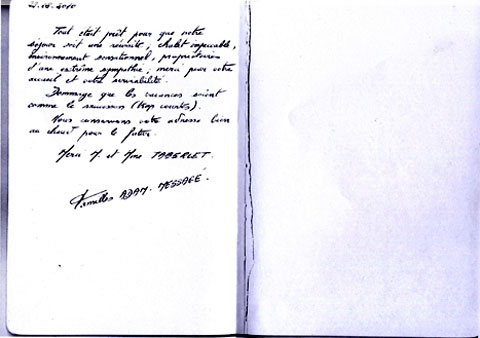 21.08.2010
Tout était prêt pour que notre
séjour soit une réussite, chalet impeccable,
environnement sensationnel, propriétaires
d'une extrême sympathie; merci pour votre
accueil et votre serviabilité.
Dommage que les vacances soient
comme le saucisson (trop courtes).
Nous conservons votre adresse bien
au chaud pour le futur.
Merci M. et Mme TABERLET.
Familles ADAM. MESSAGÉ.